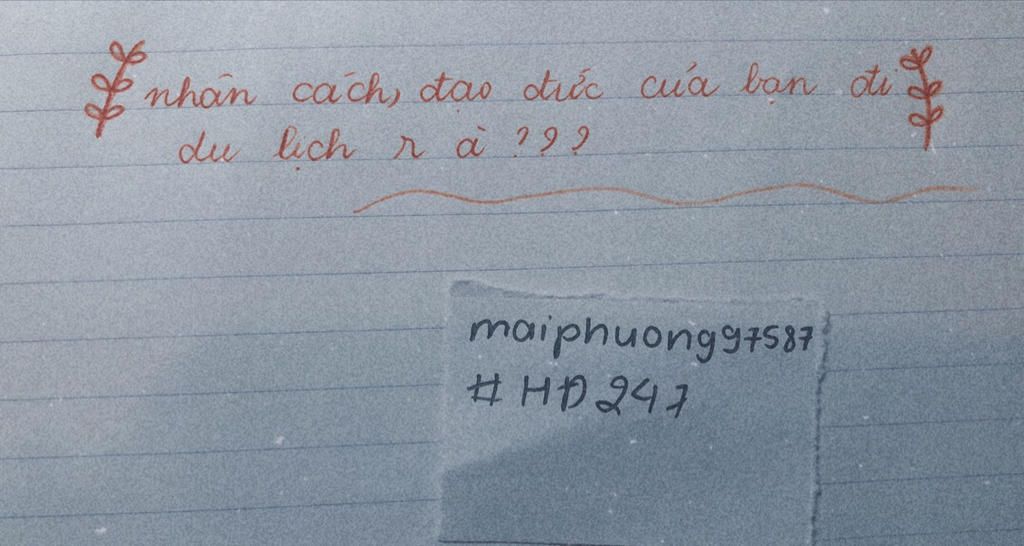 nhân cách, đạo đức của bạn đi
du lịch r à ???
maiphuong97587
#HD247